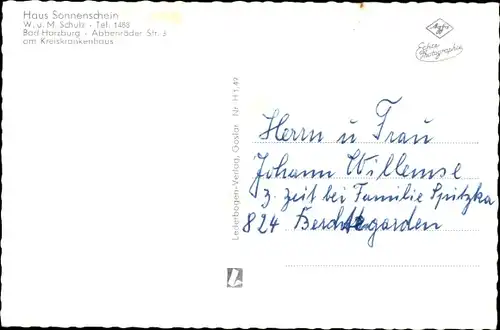 Haus Sonnenschein
W. u. M. Schulz · Tel. 1488
Bad Harzburg · Abbenröder Str. 3
am Kreiskrankenhaus
Echte
Photographie
Lederbogen-Verlag, Goslar Nr. H 1,49
Herrn u Frau
Johann Willemse
z. Zeit bei Familie Spitzka
824 Berchtegarden